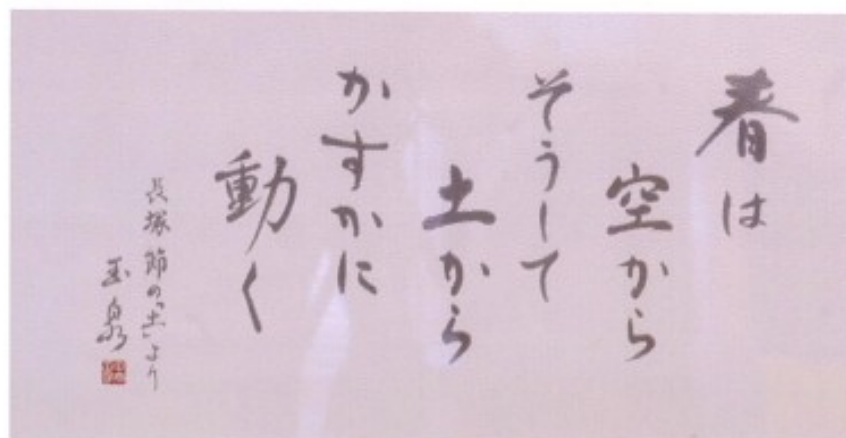 春は
空から
そうして
土から
かすかに
動く
長塚節の「土」より
玉泉